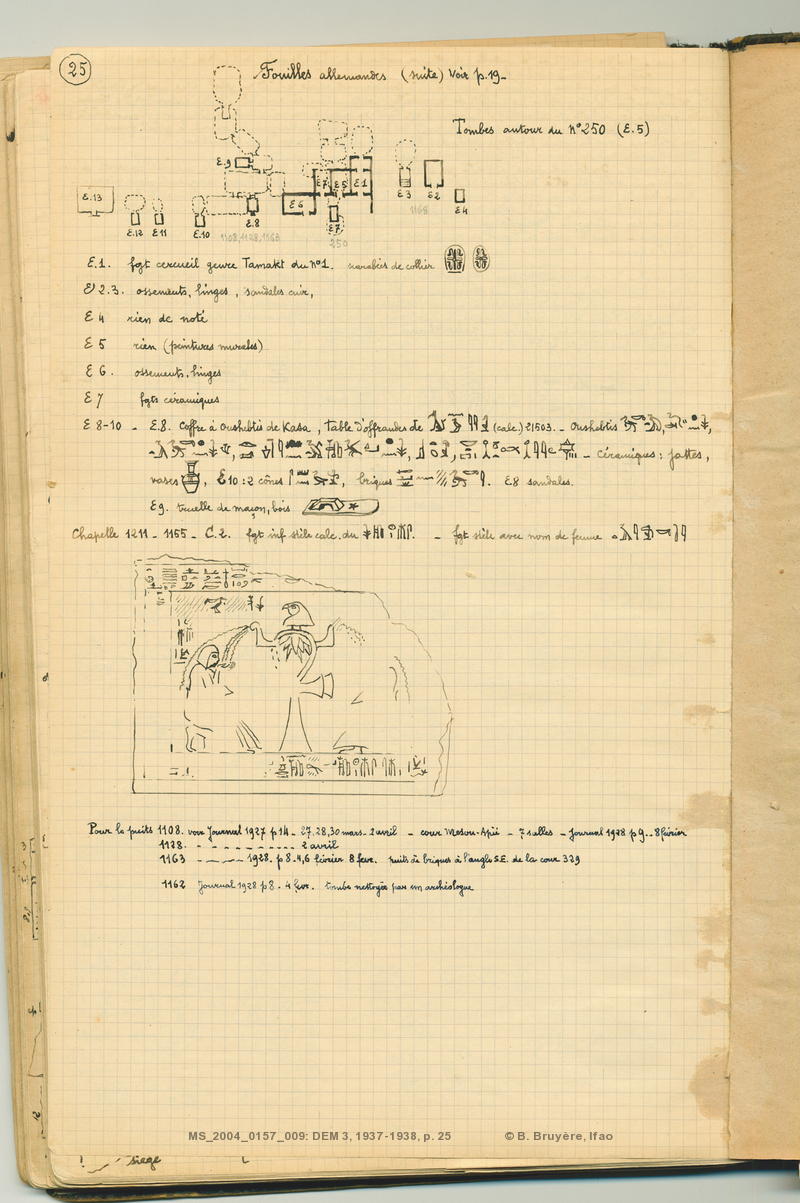 25
Fouilles allemandes (suite) Voir p.19-
Tombes autour du N°250 (E.5)
E.9
E.13
E.12
E.11
E.10
E.8
E 6
E 7
E 5
E 1
E 3
E 2
E 4
1108, 1128, 1163
250
1168
E.1. fgt cercueil genre Tamakt du n°1. scarabées de collier
E 2.3. ossements, linges, sandales cuir,
E 4 rien de noté
E 5 rien (peintures murales)
E 6. ossements, linges
E 7 fgts céramiques
E 8-10 - E.8. Coffre à Oushebtis de Kasa, table d'offrandes de (calc.) 21503. - Oushebtis
- Céramiques: jattes,
vases , E10: 2 cônes , briques . E8 sandales.
E9. truelle de maçon, bois
Chapelle 1211 - 1155 - C.2. fgt inf stèle calc. du - fgt stèle avec nom de femme
Pour le puits 1108. voir Journal 1927 p 14 - 27, 28, 30 mars - 2 avril - cour - 7 salles - Journal 1928 p 9.. 8 février
1128. - - - - - - - - - 2 avril
1163 - - - 1928. p 8. 4, 6 février 8 fevr. puits à briques à l'angle S.E. de la cour 329
1162 Journal 1928 p 8. 4 fevr. tombe nettoyée par un archéologue
siege
MS_2004_0157_009: DEM 3, 1937-1938, p. 25 © B. Bruyère, Ifao